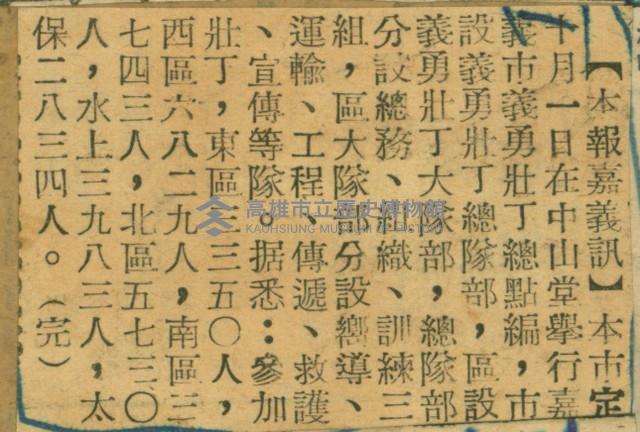 【本報嘉義訊】本市定
十月一日在中山堂舉行嘉
義市義勇壯丁總點編，市
設義勇壯丁總隊部，區設
義勇壯丁大隊部，總隊部
分設總務、組織、訓練三
組，區大隊部分設嚮導、
運輸、工程、傳遞、救護
、宣傳等隊。据悉：參加
壯丁，東區三三五〇人，
西區六八二九人，南區三
七四三人，北區五七三〇
人，水上三九八三人，太
保二八三四人。（完）
高雄市立歷史博物館
KAOHSIUNG MUSEUM OF HISTORY